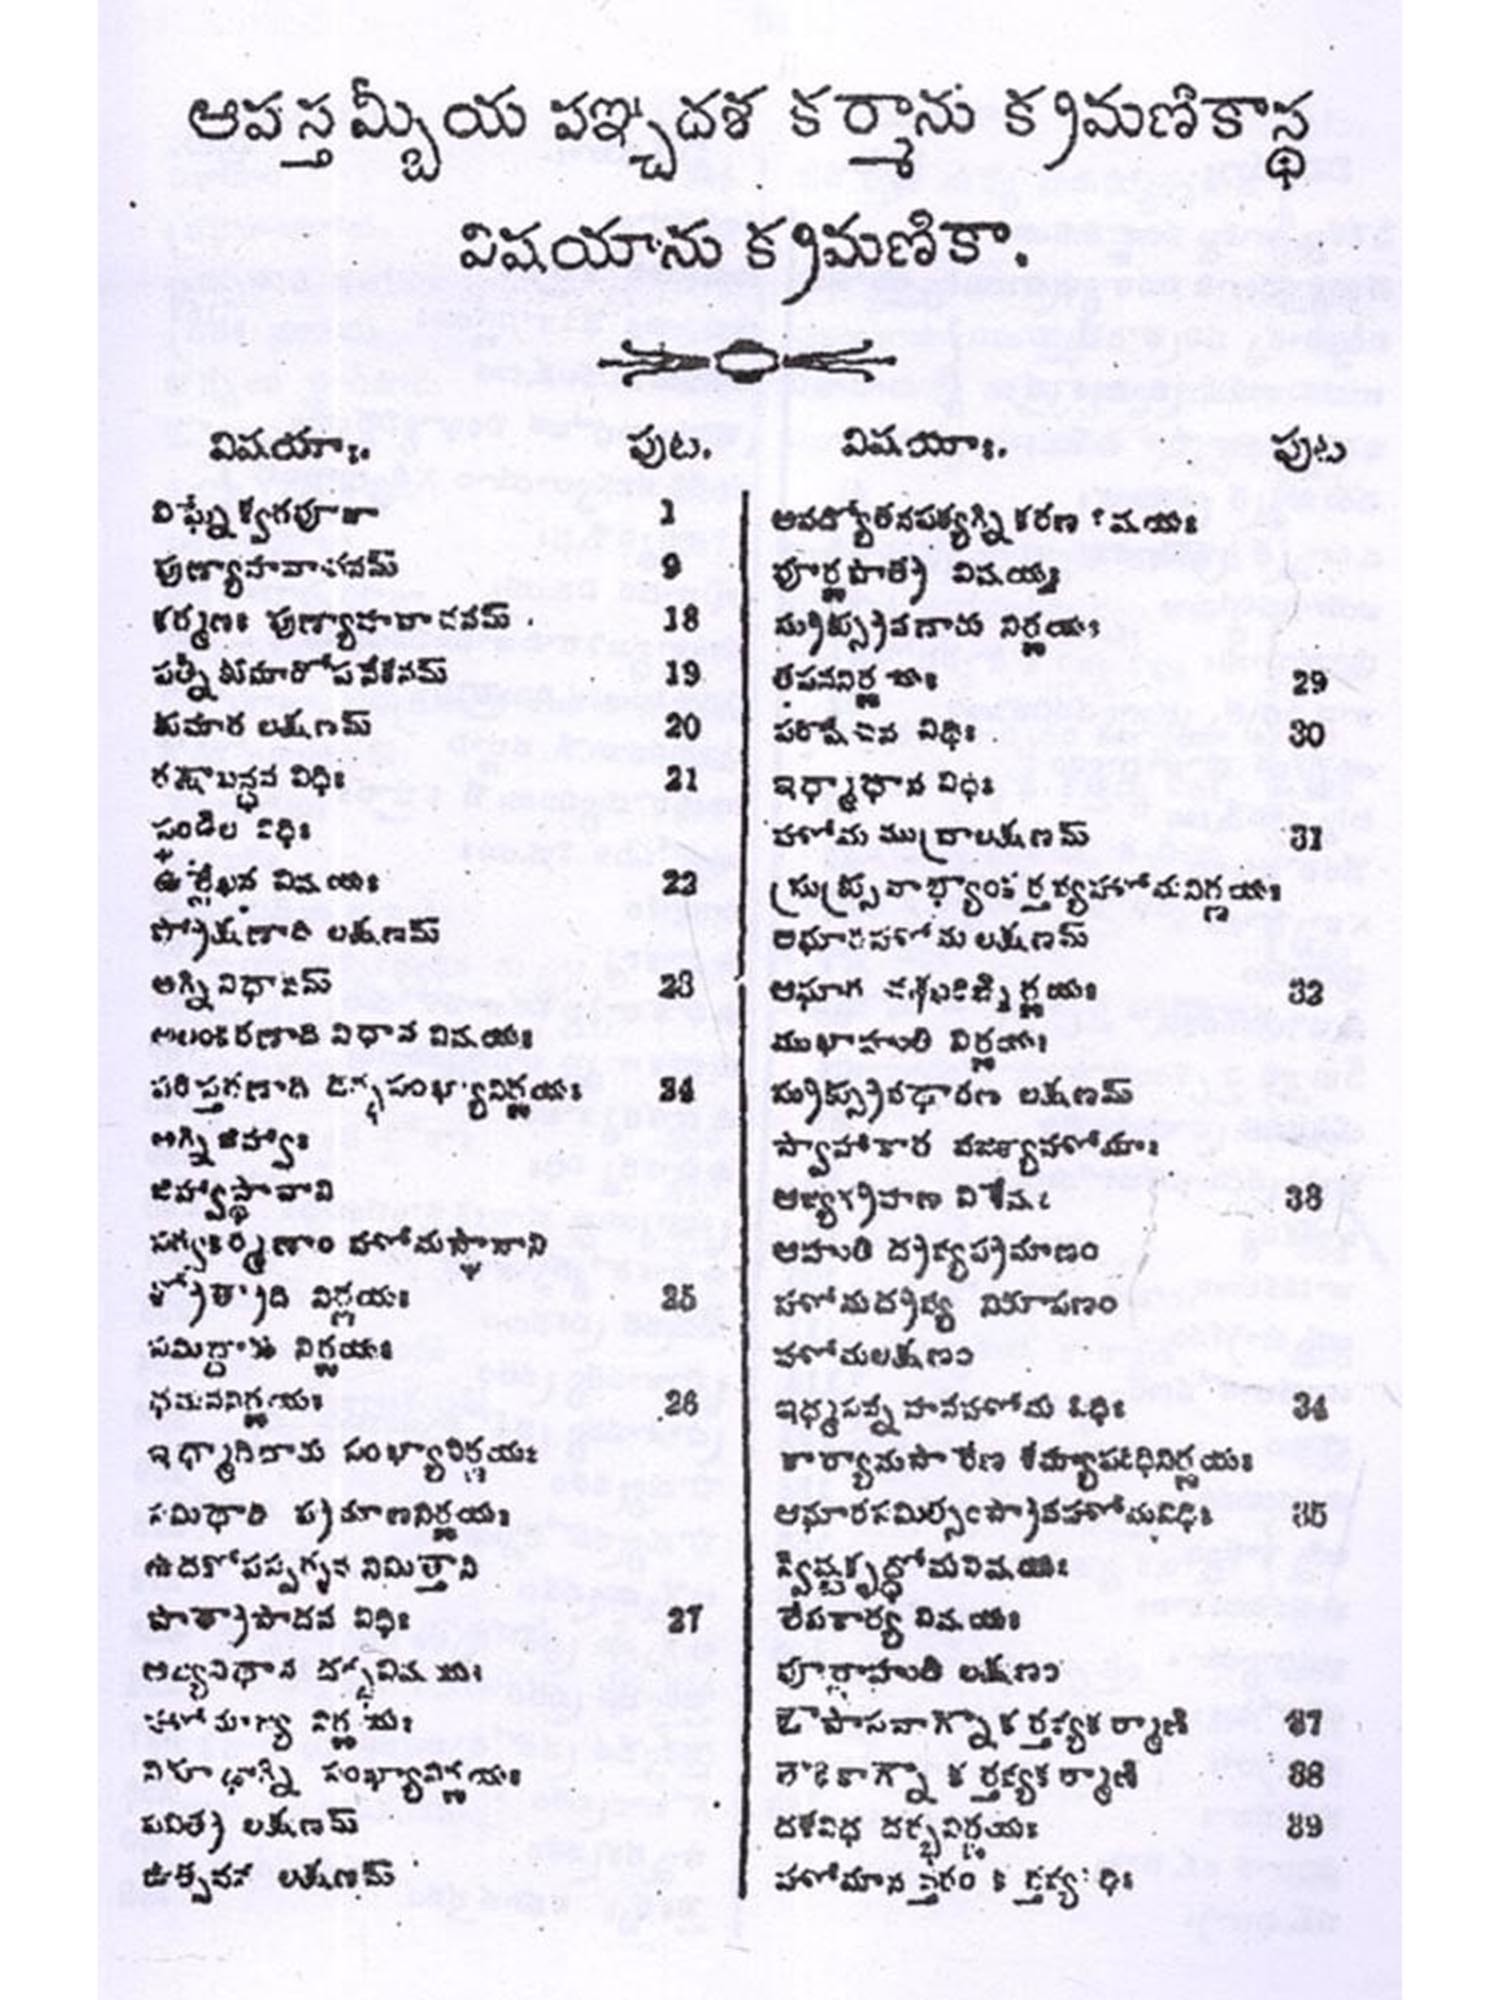 ఆపస్తమ్బీయ పఞ్చదశ కర్మాను క్రమణికాస్థ
విషయాను క్రమణికా.
విషయాః. పుట.
విఘ్నేశ్వరపూజా 1
పుణ్యాహవాచనమ్ 9
కర్మణః పుణ్యాహవాచనమ్ 18
పత్నీకుమారోపవేశనమ్ 19
కుమార లక్షణమ్ 20
రక్షాబన్ధన విధిః 21
స్థండిల విధిః
ఉల్లేఖన విషయః 22
ప్రోక్షణాది లక్షణమ్
అగ్నివిధానమ్ 23
అలంకరణాది విధాన విషయః
పరిస్తరణాది దర్భసంఖ్యానిర్ణయః 24
అగ్నిజిహ్వాః
జిహ్వాస్థానాని
సర్వకర్మణాం హోమస్థానాని
శ్రోత్రాది నిర్ణయః 25
సమిద్దాను నిర్ణయః
ధమననిర్ణయః 26
ఇధ్మాదినామ సంఖ్యానిర్ణయః
సమిధాది ప్రమాణనిర్ణయః
ఉదకోపస్పర్శన నిమిత్తాని
పాత్రాసాదన విధిః 27
ఆజ్యనిధాన దర్భవిషయః
హోమాగ్న్య నిర్ణయః
నిరూఢాగ్ని సంఖ్యానిర్ణయః
పవిత్ర లక్షణమ్
ఉత్పవన లక్షణమ్
విషయాః. పుట
అవద్యోతనపర్యగ్నికరణ విషయః
పూర్ణపాత్ర విషయః
స్రుక్స్రువనామ నిర్ణయః
లేపననిర్ణయః 29
పరిషేచన విధిః 30
ఇధ్మాధాన విధిః
హోమ ముద్రాలక్షణమ్ 31
స్రుక్స్రువాభ్యాంకర్తవ్యహోమనిర్ణయః
ఆఘారహోమ లక్షణమ్
ఆఘార చక్షుషోర్నిర్ణయః 32
ముఖాహుతి నిర్ణయః
స్రుక్స్రువధారణ లక్షణమ్
స్వాహాకార వర్జ్యహోమాః
ఆజ్యగ్రహణ విశేషః 33
ఆహుతి ద్రవ్యప్రమాణం
హోమద్రవ్య నిరూపణం
హోమలక్షణం
ఇధ్మసన్నహనహోమ విధిః 34
కార్యానుసారేణ శమ్యాపరిధినిర్ణయః
ఆఘారసమిత్సంస్రావహోమవిధిః 35
స్విష్టకృద్ధోమవిషయః
లేపకార్య విషయః
పూర్ణాహుతి లక్షణం
ఔపాసనాగ్నౌకర్తవ్యకర్మాణి 37
లౌకికాగ్నౌ కర్తవ్యకర్మాణి 38
దశవిధ దర్భనిర్ణయః 39
హోమానన్తరం కర్తవ్యవిధిః